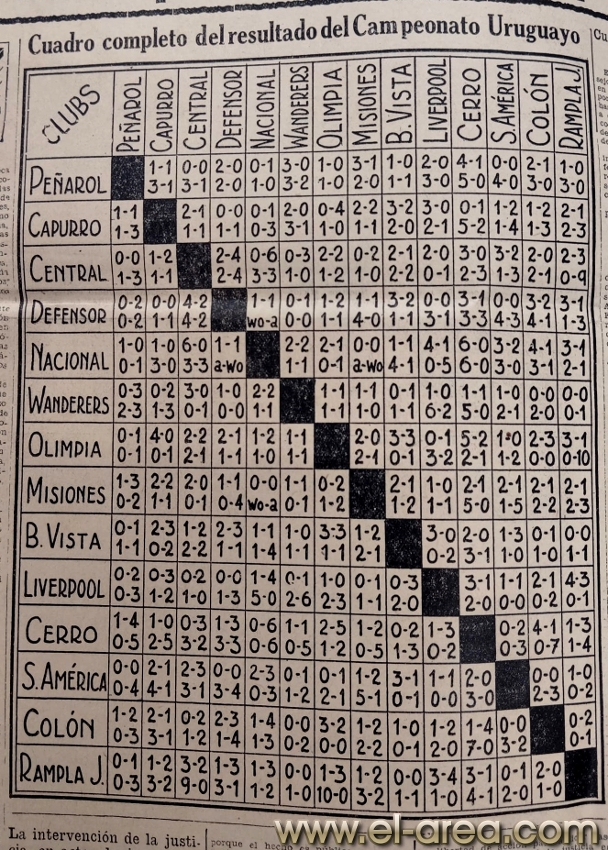 Cuadro completo del resultado del Campeonato Uruguayo
CLUBS PEÑAROL CAPURRO CENTRAL DEFENSOR NACIONAL WANDERERS OLIMPIA MISIONES B. VISTA LIVERPOOL CERRO S. AMÉRICA COLÓN RAMPLA J.
1-1 0-0 2-0 0-1 3-0 1-0 3-1 1-0 2-0 4-1 0-0 2-1 1-0
PEÑAROL
3-1 3-1 2-0 1-0 3-2 1-0 2-0 1-1 3-0 5-0 4-0 3-0 3-0
1-1 2-1 0-0 0-1 2-0 0-4 2-2 3-2 3-0 0-1 1-2 1-2 2-1
CAPURRO
1-3 1-1 1-1 0-3 3-1 1-0 1-1 2-0 2-1 5-2 1-4 1-3 2-3
0-0 1-2 2-4 0-6 0-3 2-2 0-2 2-1 2-0 3-0 3-2 2-0 2-3
CENTRAL
1-3 1-1 2-4 3-3 1-0 1-2 1-0 2-2 0-1 2-3 1-3 2-1 0-9
0-2 0-0 4-2 1-1 0-1 1-2 1-1 3-2 0-0 3-1 0-0 3-2 3-1
DEFENSOR
0-2 1-1 4-2 wo-a 0-0 1-1 4-0 1-1 3-1 3-3 4-3 4-1 1-3
1-0 1-0 6-0 1-1 2-2 2-1 0-0 1-1 4-1 6-0 3-2 4-1 3-1
NACIONAL
0-1 3-0 3-3 a-wo 1-1 0-1 a-wo 4-1 0-5 6-0 3-0 3-1 2-1
0-3 0-2 3-0 1-0 2-2 1-1 1-1 0-1 1-0 1-1 1-0 0-0 0-0
WANDERERS
2-3 1-3 0-1 0-0 1-1 1-1 1-0 1-1 6-2 5-0 2-1 2-0 0-1
0-1 4-0 2-2 2-1 1-2 1-1 2-0 3-3 0-1 5-2 1-0 2-3 3-1
OLIMPIA
0-1 0-1 2-1 1-1 1-0 1-1 2-1 0-1 3-2 2-1 1-2 0-0 0-10
1-3 2-2 2-0 1-1 0-0 1-1 0-2 2-1 1-0 2-1 2-1 2-1 2-1
MISIONES
0-2 1-1 0-1 0-4 wo-a 0-1 1-2 1-2 1-1 5-0 1-5 2-2 2-3
0-1 2-3 1-2 2-3 1-1 1-0 3-3 1-2 3-0 2-0 1-3 0-1 0-0
B. VISTA
1-1 0-2 2-2 1-1 1-4 1-1 1-0 2-1 0-2 3-1 1-0 1-0 1-1
0-2 0-3 0-2 0-0 1-4 0-1 1-0 0-1 0-3 3-1 1-1 2-1 4-3
LIVERPOOL
0-3 1-2 1-0 1-3 5-0 2-6 2-3 1-1 2-0 2-0 0-0 0-2 0-1
1-4 1-0 0-3 1-3 0-6 1-1 2-5 1-2 0-2 1-3 0-2 4-1 1-3
CERRO
0-5 2-5 3-2 3-3 0-6 0-5 1-2 0-5 1-3 0-2 0-3 0-7 1-4
0-0 2-1 2-3 0-0 2-3 0-1 0-1 1-2 3-1 1-1 2-0 0-0 1-0
S. AMÉRICA
0-4 4-1 3-1 3-4 0-3 1-2 2-1 5-1 0-1 0-0 3-0 2-3 0-2
1-2 2-1 0-2 2-3 1-4 0-0 3-2 1-2 1-0 1-2 1-4 0-0 0-2
COLÓN
0-3 3-1 1-2 1-4 1-3 0-2 0-0 2-2 0-1 2-0 7-0 3-2 0-1
0-1 1-2 3-2 1-3 1-3 0-0 1-3 1-2 0-0 3-4 3-1 0-1 2-0
RAMPLA J.
0-3 3-2 9-0 3-1 1-2 1-0 10-0 3-2 1-1 1-0 4-1 2-0 1-0
La intervención de la justi-
porque el hecho
www.el-area.com